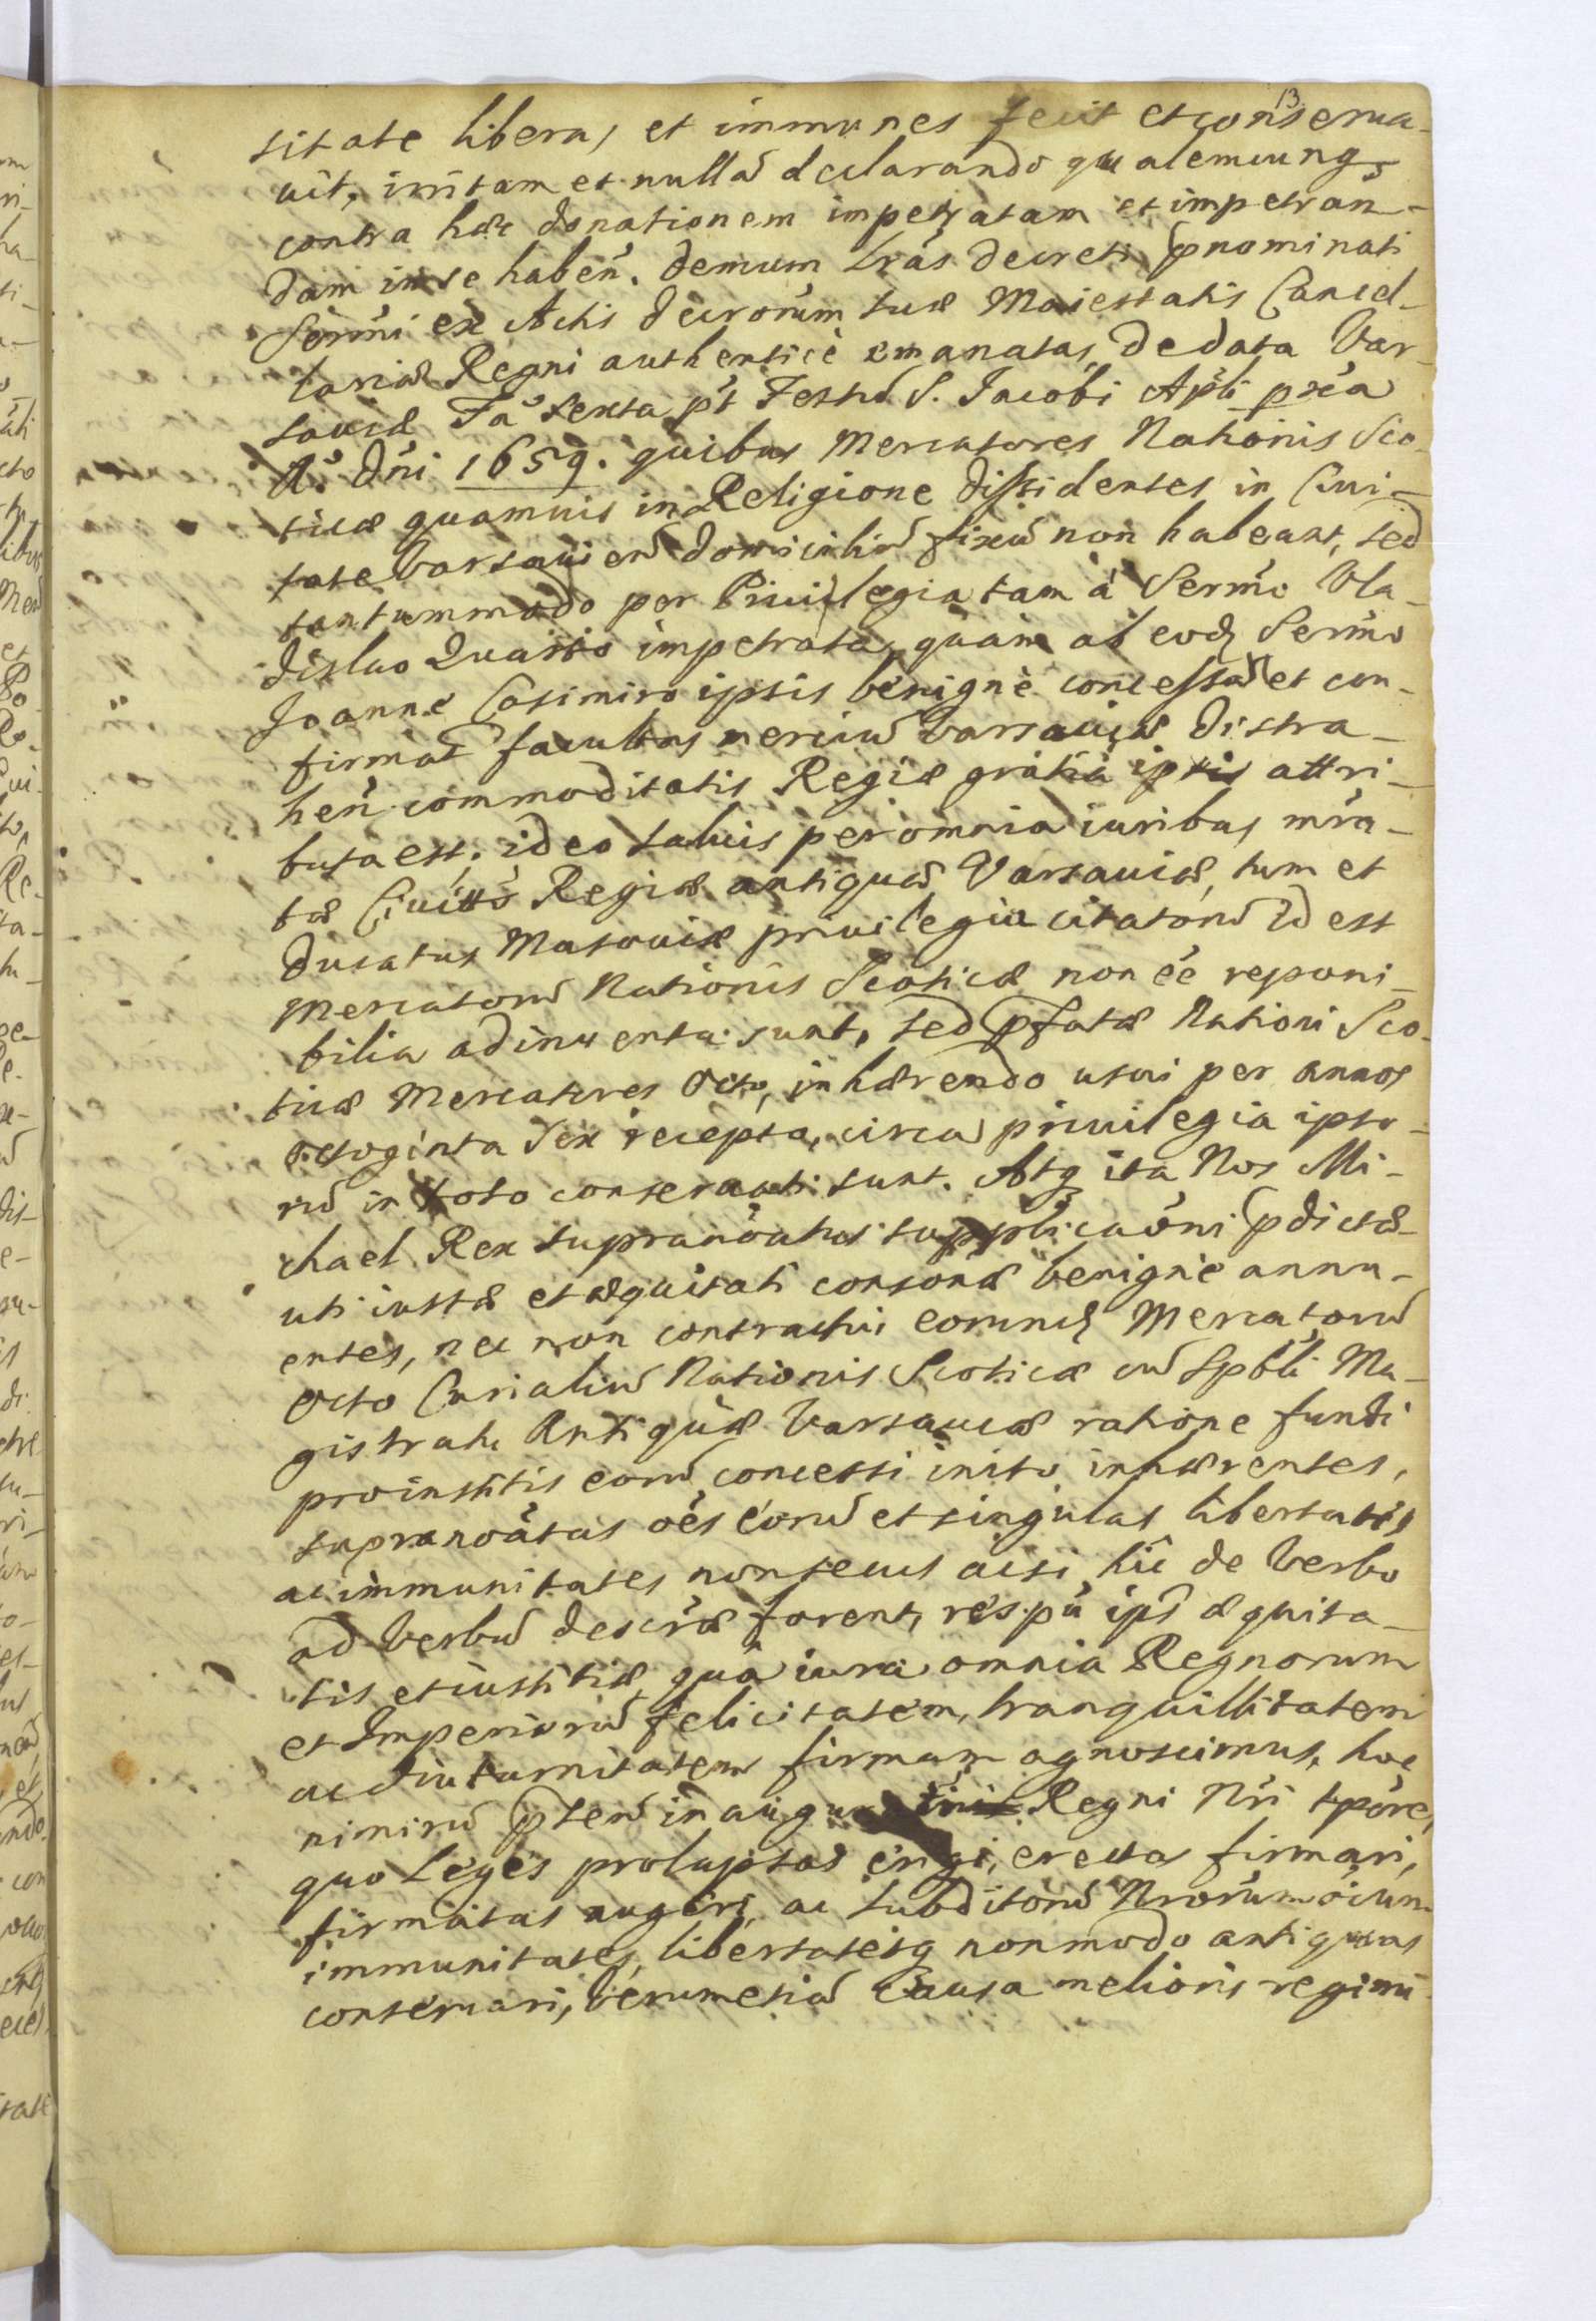 13.
sitate liberas et immunes fecit et conserua-
uit, irritam et nullã declarando qualemcunq
contra hãc donationem impetratam et impetran-
dam in se haben̄. Demum Lrãs Decreti p̄nominati
Serm̄i ex Actis Decrorum suæ Maiestatis Cancel-
lariæ Regni authenticè emanatas, de data Var-
sauiæ Fā sexta pt̄ Festũ S. Jacobi Apl̄i pxa
Aº Dn̄i 1659. quibus Mercatores Nationis Sco-
ticæ quamuis in Religione dissidentes in Ciui-
tate Varsauien̄ domiciliũ fixũ non habeant, sed
tantummodo per Priuilegia tam à Serm̄o Vla-
dislao Quarto impetrata, quam ab eod Serm̄o
Joanne Casimiro ipsis benignè concessa et con-
firmat facultas merciũ Varsauiæ distra-
hen̄ commoditatis Regiæ gratiâ ipsis attri-
buta est, ideo saluis per omnia iuribus mr̄a-
tæ Ciuitts̄ Regiæ antiquæ Varsauiæ, tum et
Ducatus Masouiæ priuilegia citatorũ id est
Mercatorũ Nationis Scoticæ non eē reponi-
bilia adinuenta sunt, sed p̄fatæ Nationi Sco-
ticæ Mercatores Octo, inhærendo usui per annos
octoginta sex recepto, circa priuilegia ipso-
rũ in toto conseruati sunt. Atq ita Nos Mi-
chael Rex supranoātus supplicaōni p̄dictæ
uti iustæ et æquitati consonæ benignè annu-
entes, nec non contractui eorund Mercatorũ
Octo Curialiũ Nationis Scoticæ cũ Spbl̄i Ma-
gistratu Antiquæ Varsauiæ ratione fundi
pro institis eorũ concessi inito inhærentes,
supranoātas oēs eorũ et singulas libertates
ac immunitates non secus acsi hîc de Verbo
ad Verbũ descrp̄æ forent, respu ips æquita-
tis et iustitiæ, quâ iura omnia Regnorum
et Imperiorũ felicitatem, tranquillitatem
ac diuturnitatem firmam agnoscimus, hoc
nimirũ p̄sen̄ in augur Regni Nr̄i tpōre,
quo Leges prolapsas erigi, erectas firmari,
firmatas augeri, ac subditorũ Nrorum oīum
immunitates, libertatesq non modo antiquas
conseruari, verumetiã causa melioris regimi